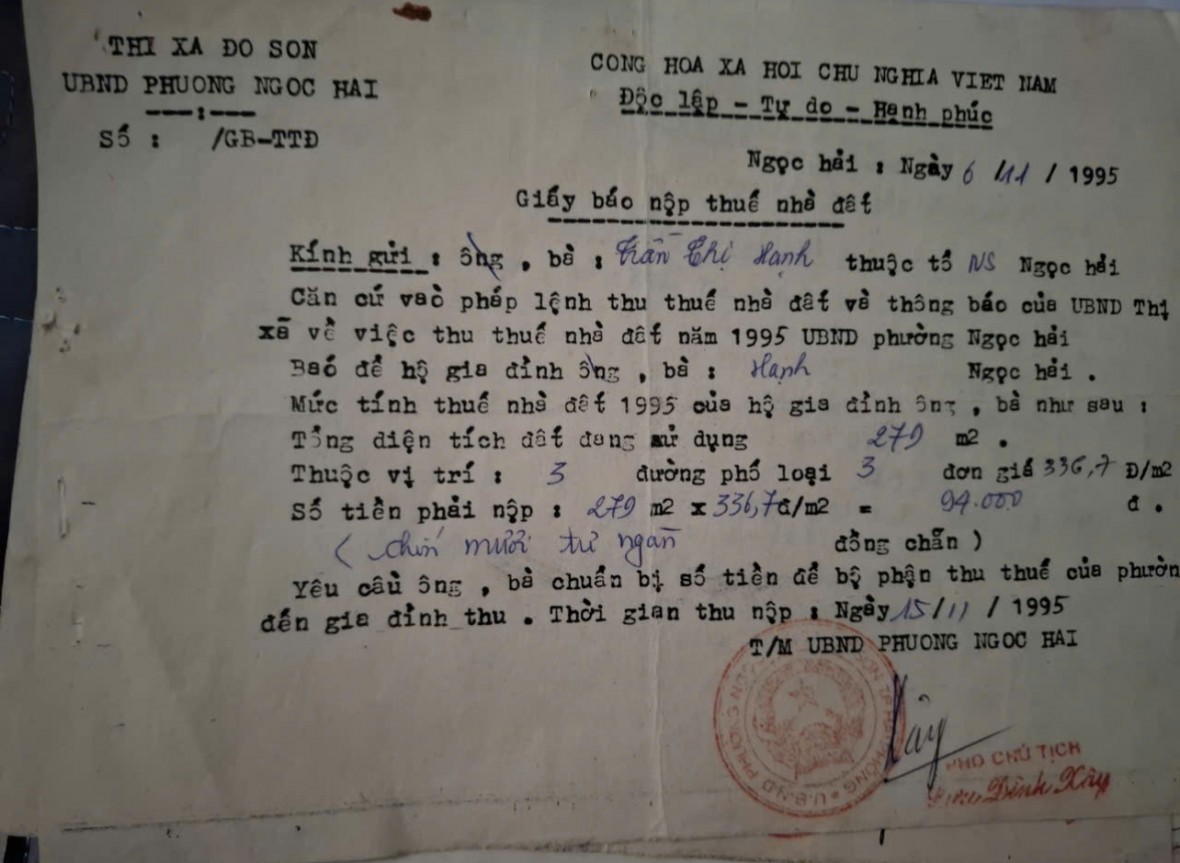 THI XA ĐO SON
UBND PHUONG NGOC HAI
Số : /GB-TTĐ
CONG HOA XA HOI CHU NGHIA VIET NAM
Độc lập - Tự do - Hạnh phúc
Ngọc hải : Ngày 6 /11 / 1995
Giấy báo nộp thuế nhà đất
Kính gửi : ông , bà : Trần Thị Hạnh thuộc tổ NS Ngọc hải
Căn cứ vaò pháp lệnh thu thuế nhà đất và thông báo của UBND Thị
xã về việc thu thuế nhà đất năm 1995 UBND phường Ngọc hải
Baó để hộ gia đình ông , bà : Hạnh Ngọc hải .
Mức tính thuế nhà đất 1995 của hộ gia đình ông , bà như sau :
Tổng diện tích đất đang sử dụng 279 m2 .
Thuộc vị trí : 3 đường phố loại 3 đơn giá 336,7 Đ/m2
Số tiền phải nộp : 279 m2 x 336,7đ/m2 = 94.000 đ .
( chín mươi tư ngàn đồng chẵn )
Yêu cầu ông , bà chuẩn bị số tiền để bộ phận thu thuế của phườn
đến gia đình thu . Thời gian thu nộp : Ngày 15/11 / 1995
T/M UBND PHUONG NGOC HAI
PHÓ CHỦ TỊCH
Đình Xây